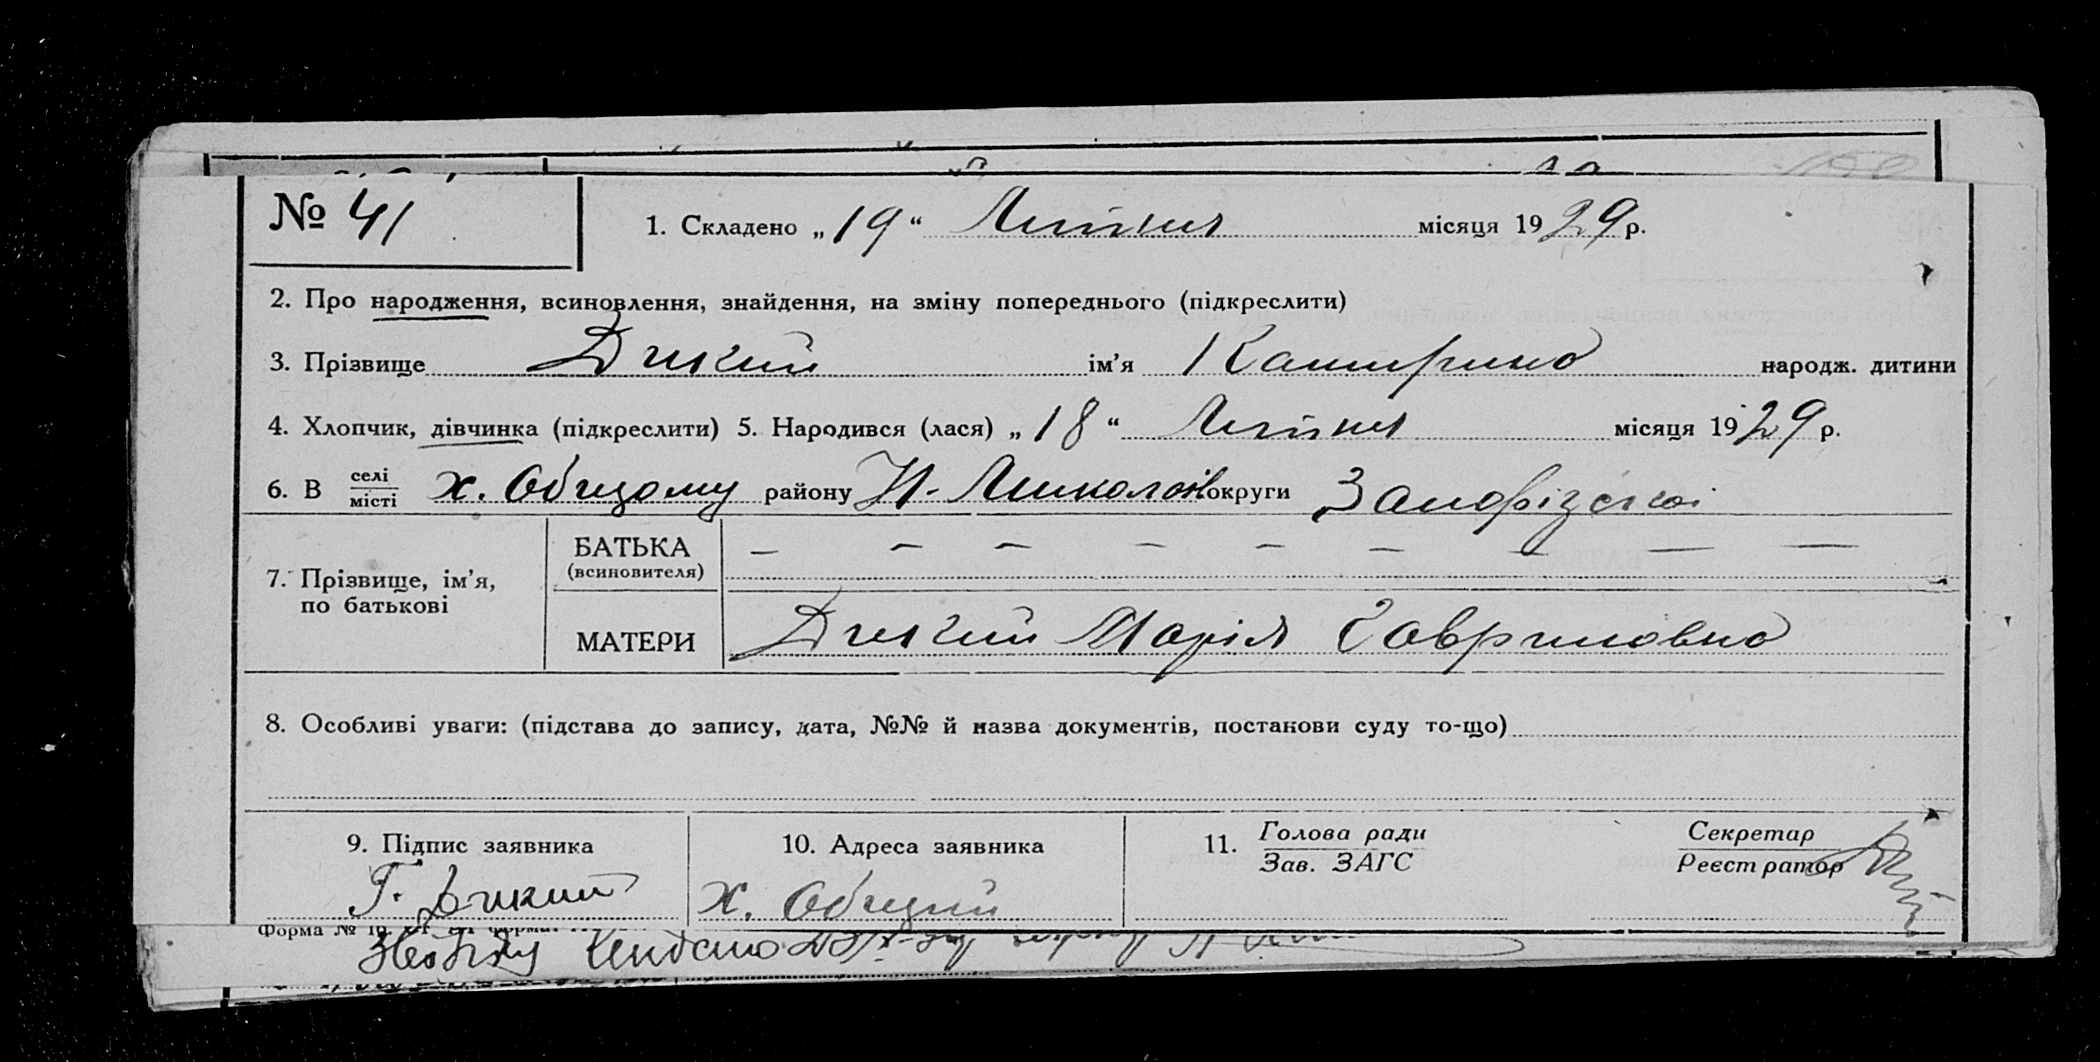 № 41
1. Складено „ 19 “ Липня місяця 1929 р.
2. Про народження, всиновлення, знайдення, на зміну попереднього (підкреслити)
3. Прізвище Дикий ім’я Катирина народж. дитини
4. Хлопчик, дівчинка (підкреслити) 5. Народився (лася) „ 18 “ Липня місяця 1929 р.
6. В селі місті х. Общому району Н-Миколаїв округи Запорізської
7. Прізвище, ім’я, по батькові
БАТЬКА (всиновителя) — — — — — — — — —
МАТЕРИ Дикий Марія Гавриловна
8. Особливі уваги: (підстава до запису, дата, №№ й назва документів, постанови суду то-що)
9. Підпис заявника
Г. Дикий
10. Адреса заявника
х. Общий
11. Голова ради
Зав. ЗАГС
Секретар
Реєстратор
Форма №